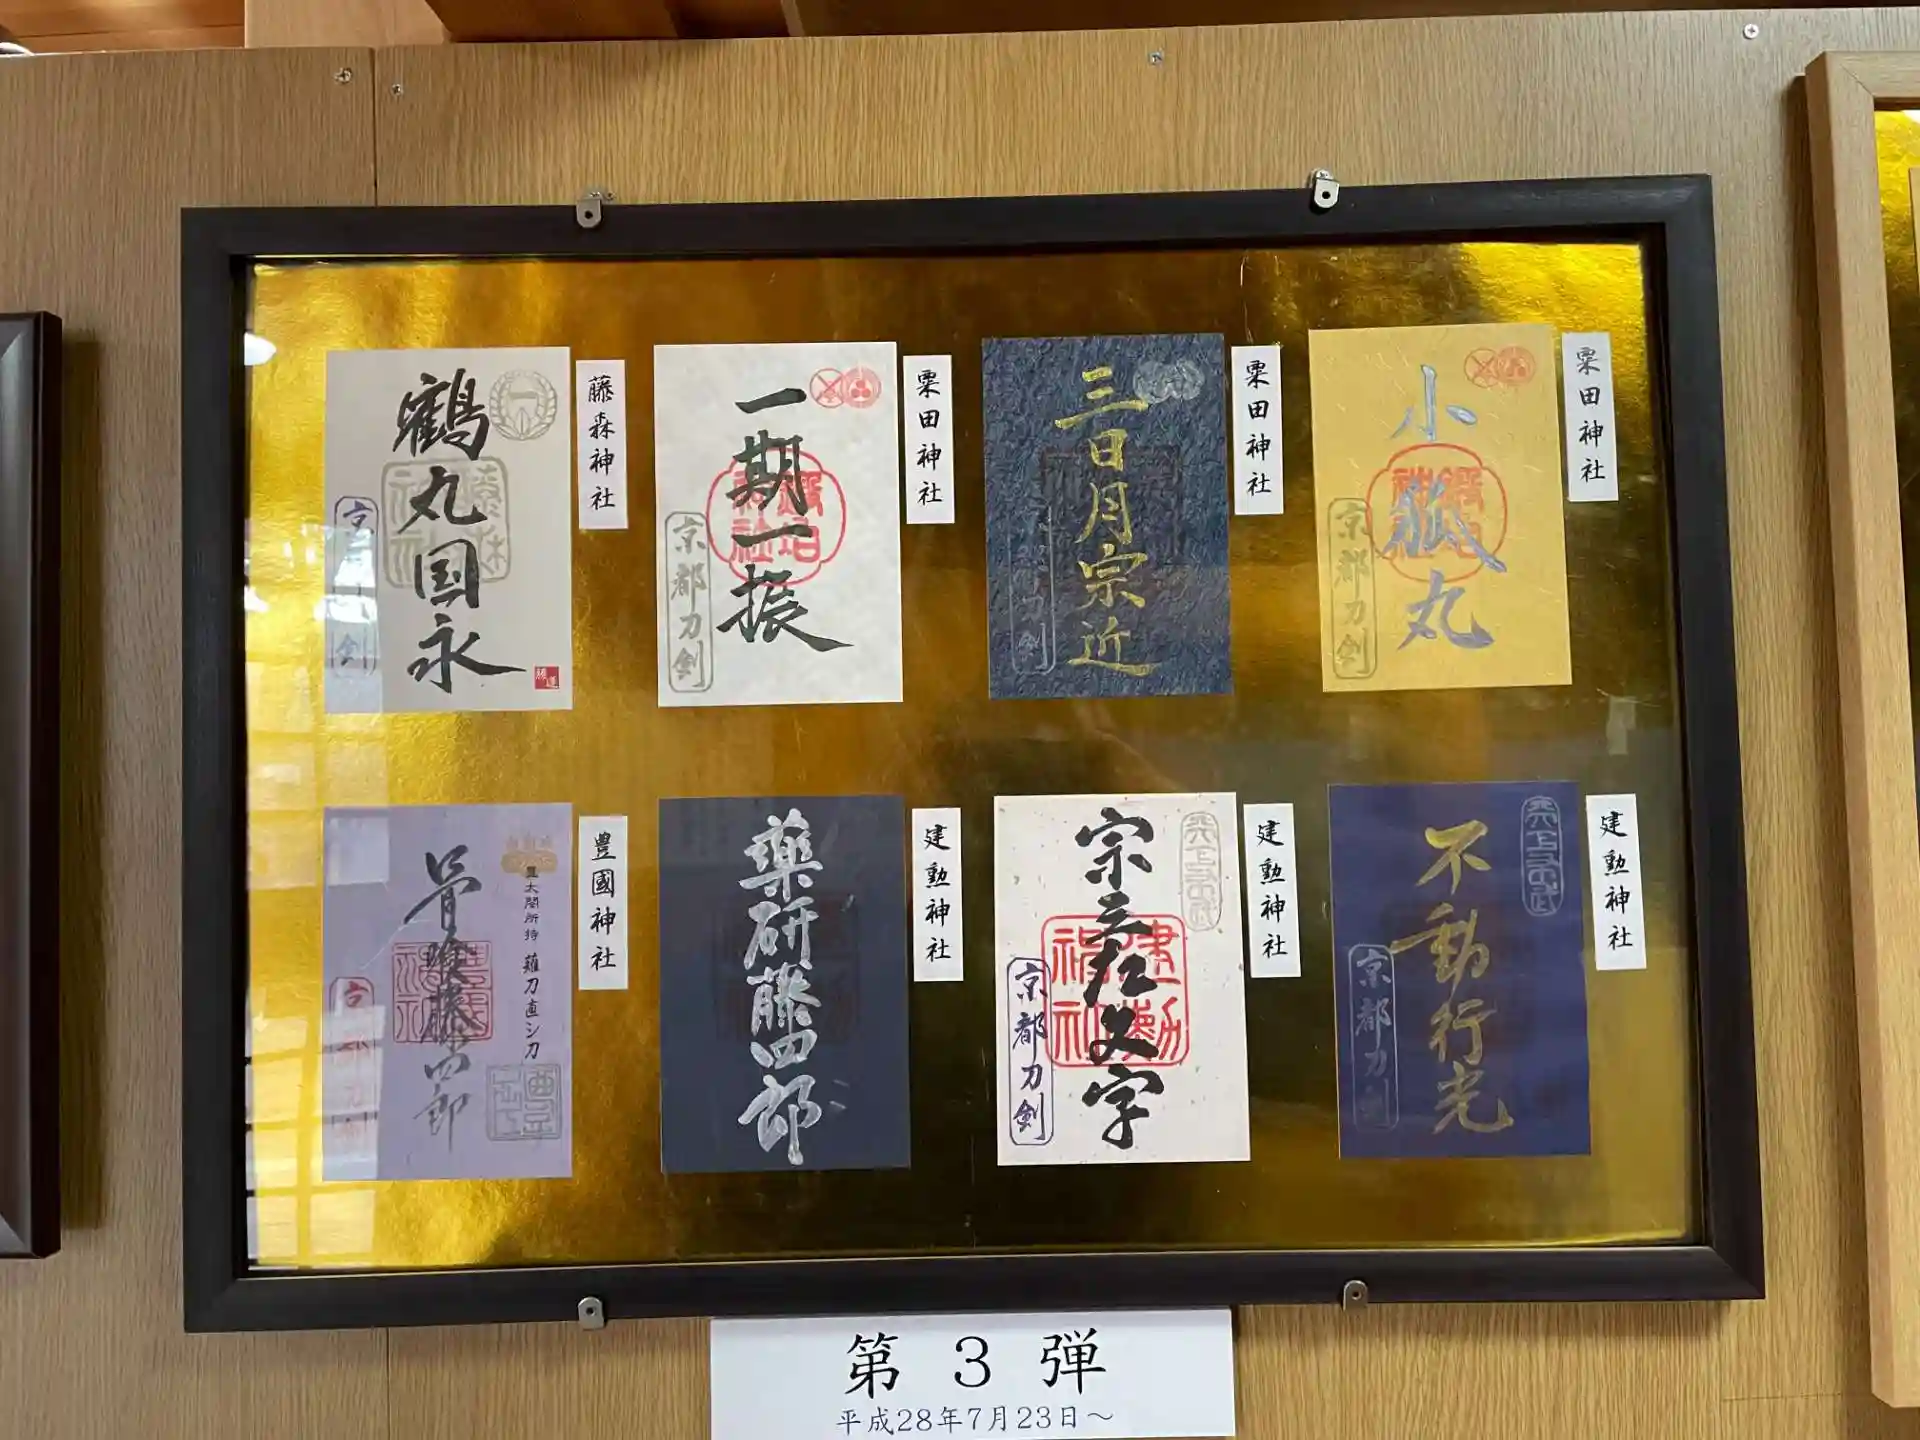 鶴丸国永
藤森神社
一期一振
京都刀剣
粟田神社
三日月宗近
粟田神社
小狐丸
京都刀剣
粟田神社
骨喰藤四郎
豊太閤所持 薙刀直シ刀
豊國神社
薬研藤四郎
建勲神社
宗三左文字
京都刀剣
建勲神社
不動行光
京都刀剣
建勲神社
第3弾
平成28年7月23日～